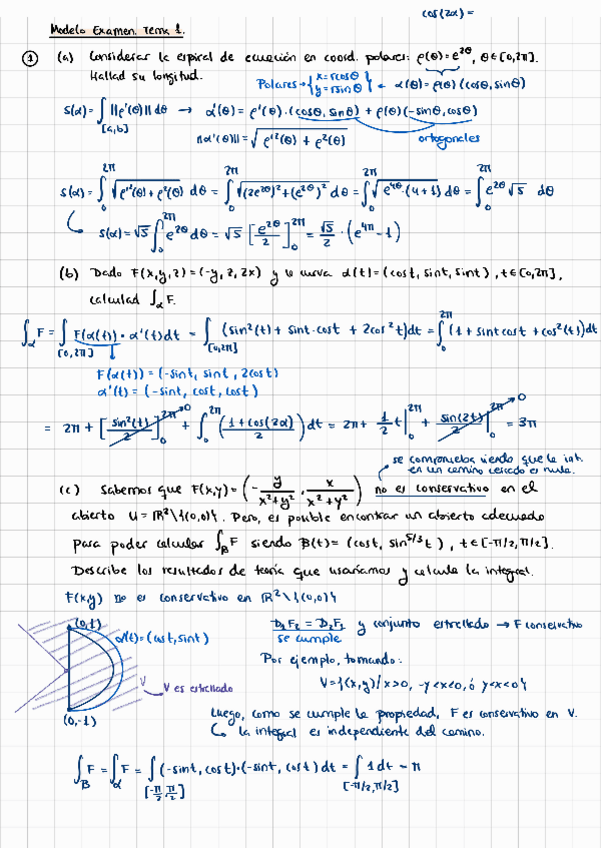 cos(2α) =
Modelo Examen. Tema 1.
① (a) Considerar la espiral de ecuación en coord. polares: ρ(θ)=e^{2θ}, θ∈[0,2π].
Hallad su longitud.
Polares → {x=rcosθ y=rsinθ} ← α(θ)=ρ(θ)(cosθ, sinθ)
S(α)=∫_{[a,b]} ||ρ'(θ)|| dθ → α'(θ) = ρ'(θ)·(cosθ, sinθ) + ρ(θ)(-sinθ, cosθ)
ortogonales
||α'(θ)|| = √(ρ'²(θ) + ρ²(θ))
S(α)=∫_0^{2π} √(ρ'²(θ)+ρ²(θ)) dθ = ∫_0^{2π} √((2e^{2θ})²+(e^{2θ})²) dθ = ∫_0^{2π} √(e^{4θ}·(4+1)) dθ = ∫_0^{2π} e^{2θ} √5 dθ
S(α)=√5 ∫_0^{2π} e^{2θ} dθ = √5 [e^{2θ}/2]_0^{2π} = √5/2 · (e^{4π} - 1)
(b) Dado F(x,y,z)=(-y, z, 2x) y la curva α(t)=(cost, sint, sint), t∈[0,2π],
calculad ∫_α F.
∫_α F = ∫_{[0,2π]} F(α(t))·α'(t)dt = ∫_{[0,2π]} (sin²(t) + sint·cost + 2cos²t)dt = ∫_0^{2π} (1 + sint cost + cos²(t))dt
F(α(t)) = (-sint, sint, 2cost)
α'(t) = (-sint, cost, cost)
= 2π + [sin²(t)/2]_0^{2π} → 0 + ∫_0^{2π} ((1+cos(2α))/2) dt = 2π + 1/2 t|_0^{2π} + sin(2t)/2 |_0^{2π} → 0 = 3π
se comprueba viendo que la int.
en un camino cerrado es nula.
(c) Sabemos que F(x,y)=(-y/(x²+y²), x/(x²+y²)) no es conservativo en el
abierto U=ℝ²\{(0,0)}. Pero, es posible encontrar un abierto adecuado
para poder calcular ∫_β F siendo β(t)=(cost, sin^{5/3}t), t∈[-π/2,π/2].
Describe los resultados de teoría que usaríamos y calcula la integral.
F(x,y) no es conservativo en ℝ²\{(0,0)}
(0,1)
α(t)=(cost, sint)
D₁F₂ = D₂F₁ y conjunto estrellado → F conservativo
se cumple
Por ejemplo, tomando:
V={(x,y)/x>0, -y<x<0, ó y<x<0}
V
V es estrellado
(0,-1)
Luego, como se cumple la propiedad, F es conservativo en V.
↳ la integral es independiente del camino.
∫_β F = ∫_α F = ∫_{[-π/2,π/2]} (-sint, cost)·(-sint, cost) dt = ∫_{[-π/2,π/2]} 1 dt = π